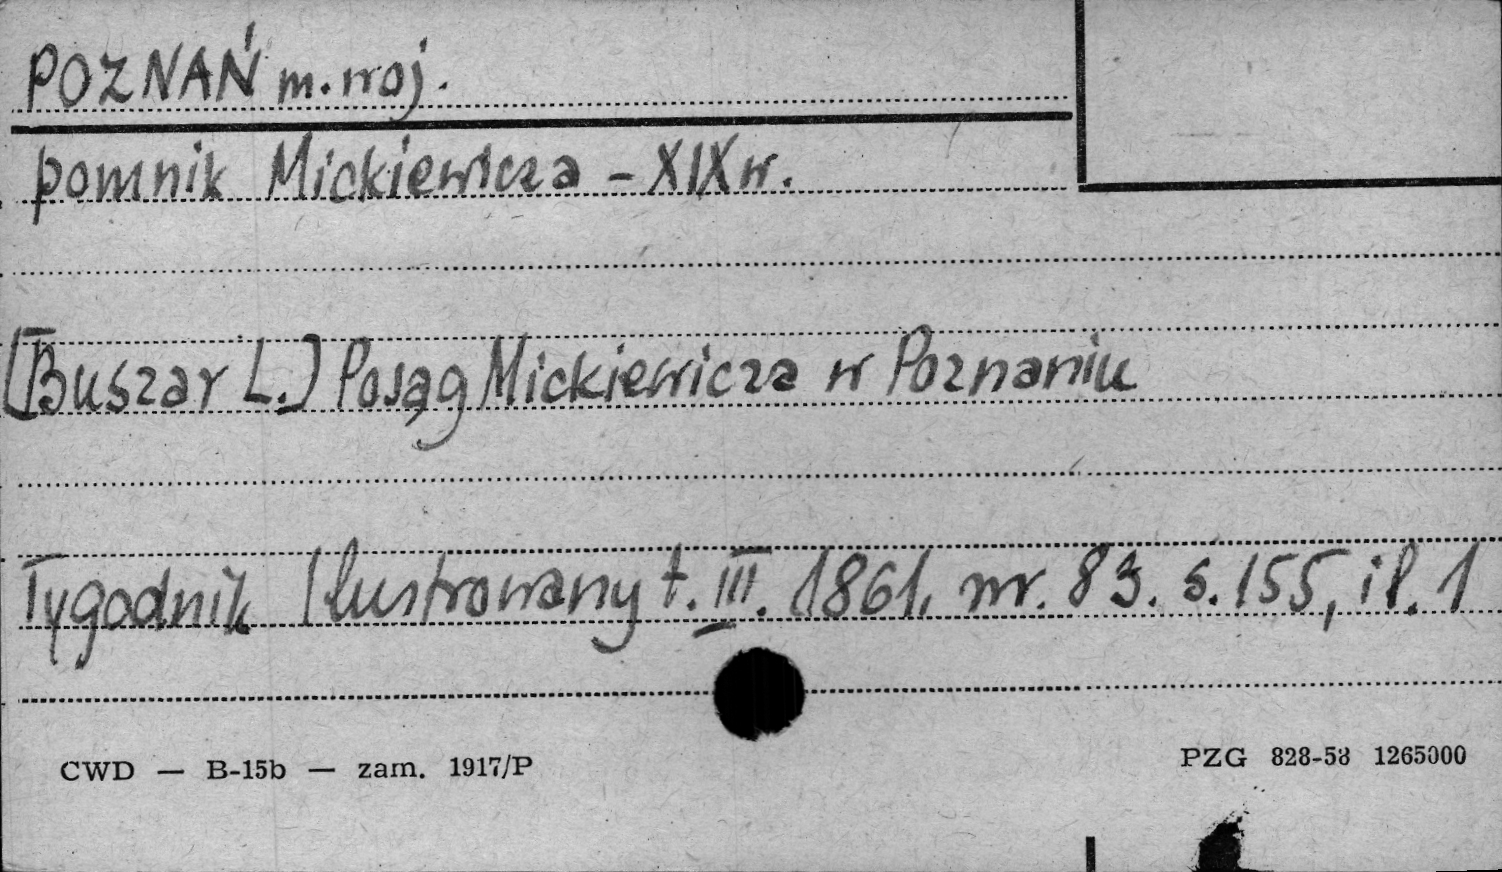 POZNAŃ m. woj.
pomnik Mickiewicza - XIX w.
[Buszar L.] Posąg Mickiewicza w Poznaniu
Tygodnik Ilustrowany t. III. 1861. nr. 83. s. 155, il. 1
CWD — B-15b — zam. 1917/P
PZG 828-58 1265000